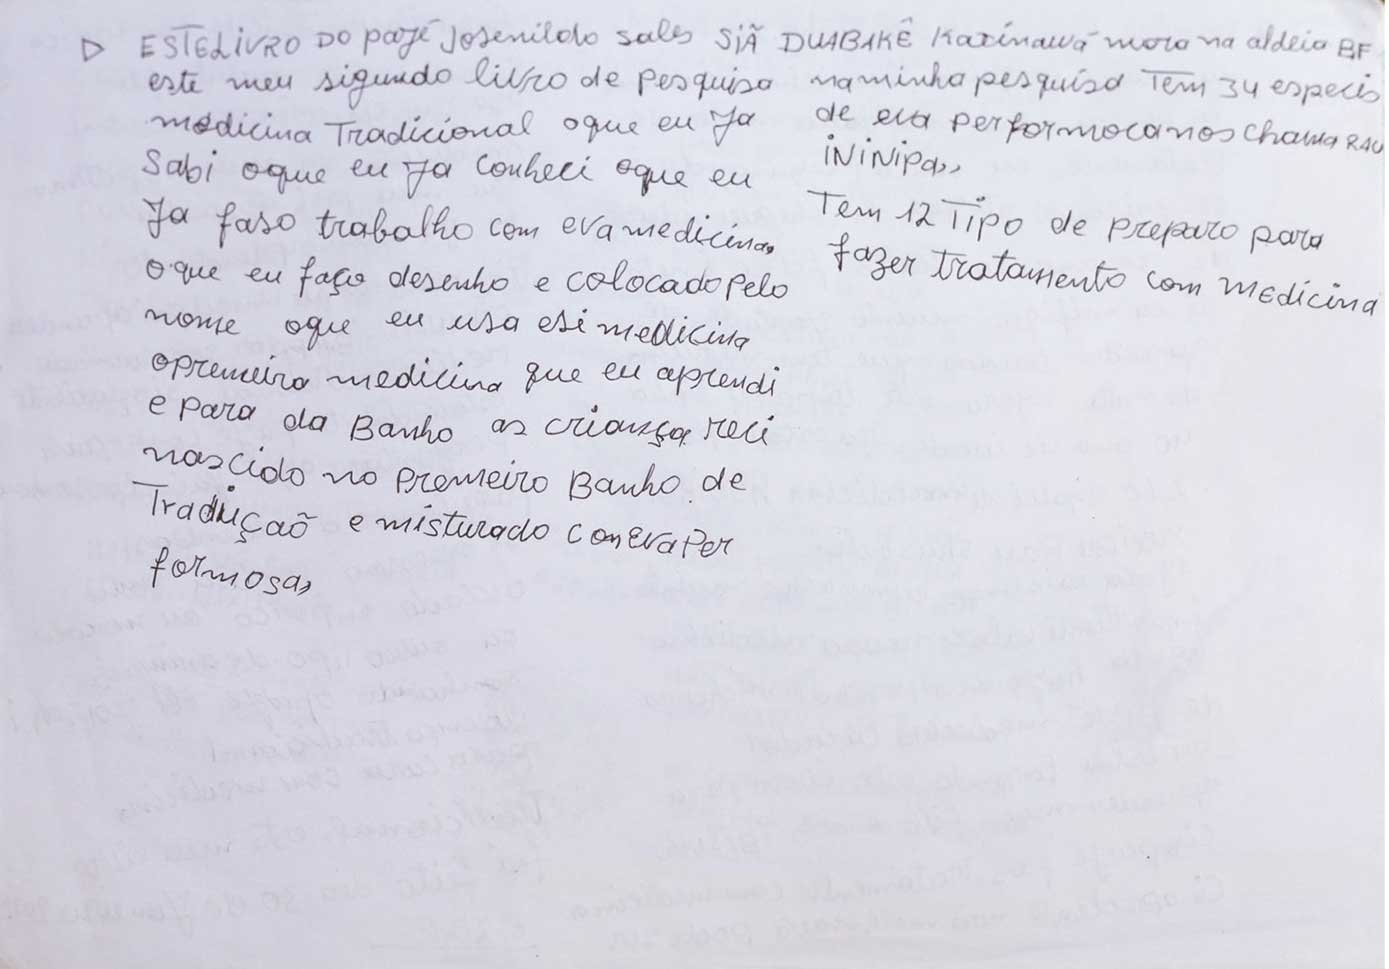 ▷ ESTE LIVRO DO pajé Josenildo sales SIÃ DUABAKÊ Kaxinawá mora na aldeia BF
este meu sigundo livro de pesquisa
medicina Tradicional oque eu Ja
Sabi oque eu Ja conheci oque eu
Ja faso trabalho com eva medicina,
oque eu faço desenho e colocado pelo
nome oque eu usa esi medicina
opremeira medicina que eu aprendi
e para da Banho as criança reci
nascido no premeiro Banho de
Traduçaõ e misturado con eva Per
formosa,
na minha pesquisa Tem 34 especis
de eva performoca nos chama RAU
ININIPA,,
Tem 12 Tipo de preparo para
fazer tratamento com medicina